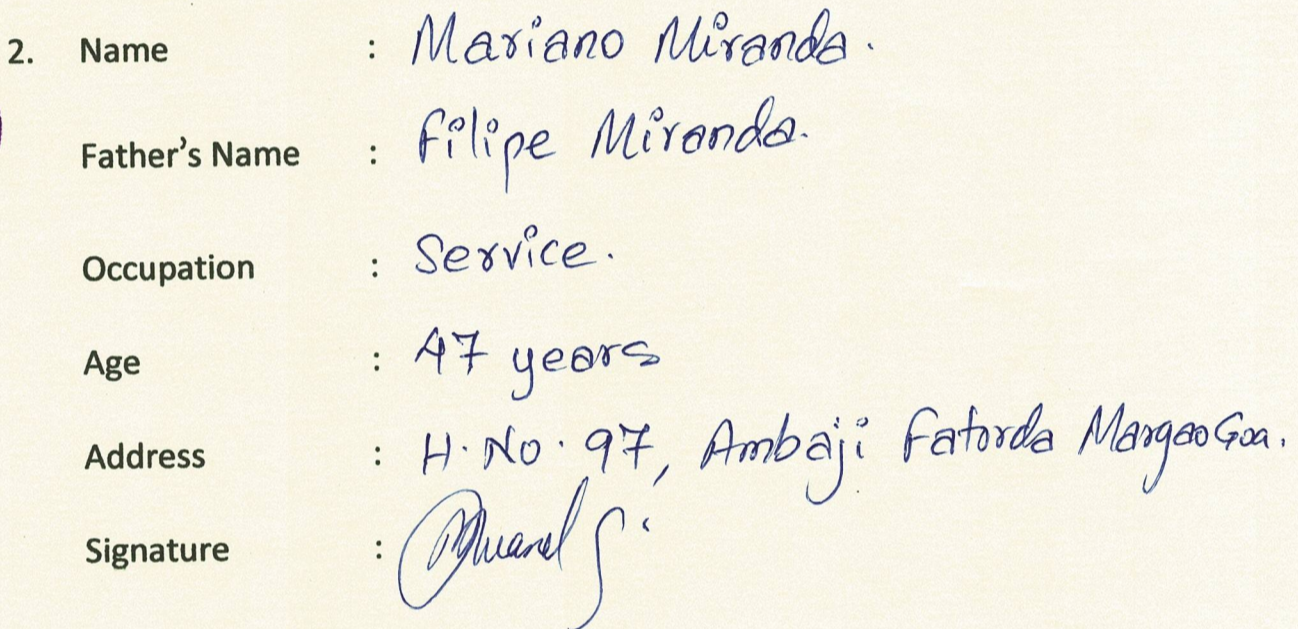 2. Name : Mariano Miranda.
Father's Name : Filipe Miranda.
Occupation : Service.
Age : 47 years
Address : H. No. 97, Ambaji Fatorda Margao Goa.
Signature :